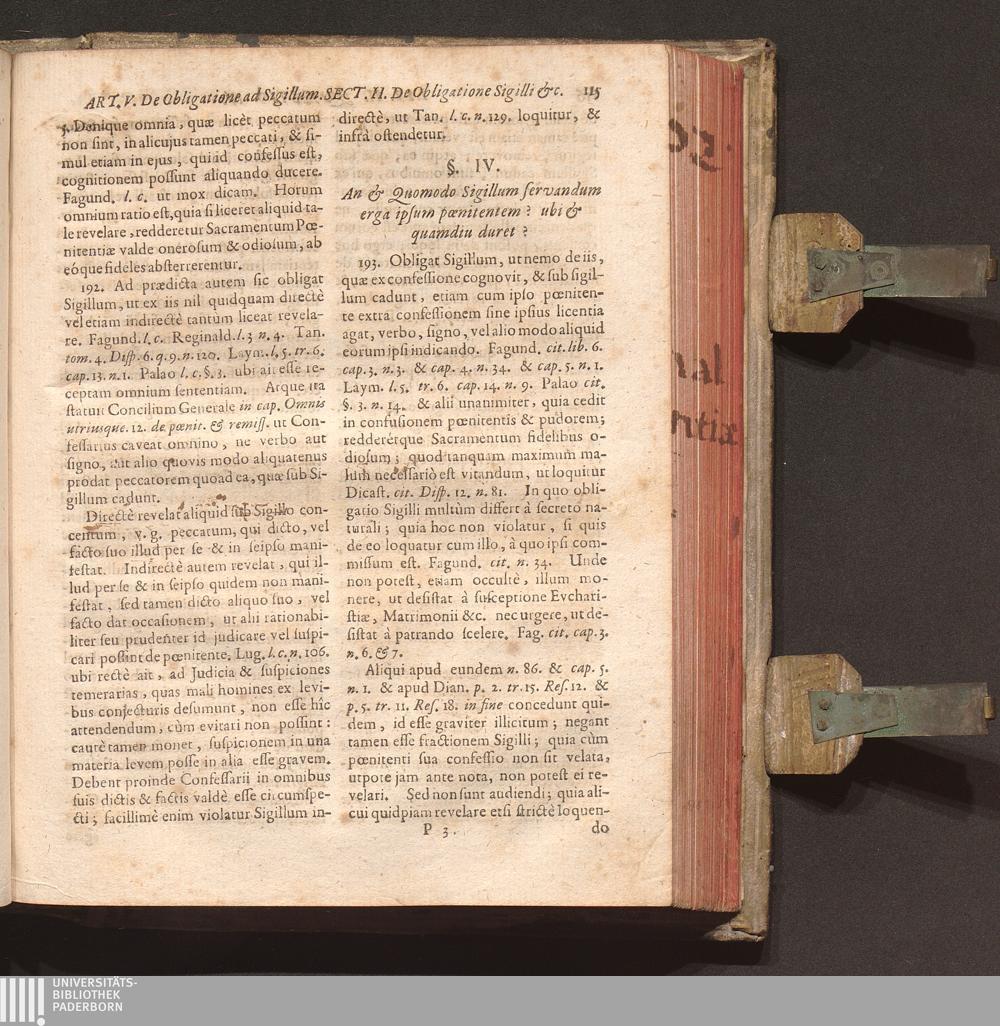 ART. V. De Obligatione ad Sigillum. SECT. II. De Obligatione Sigilli &c. 115
5. Denique omnia, quæ licèt peccatum
non sint, in alicujus tamen peccati, & si-
mul etiam in ejus, qui id confessus est,
cognitionem possunt aliquando ducere.
Fagund. l. c. ut mox dicam. Horum
omnium ratio est, quia si liceret aliquid ta-
le revelare, redderetur Sacramentum Pœ-
nitentiæ valde onerosum & odiosum, ab
eóque fideles absterrerentur.
192. Ad prædicta autem sic obligat
Sigillum, ut ex iis nil quidquam directè
vel etiam indirectè tantum liceat revela-
re. Fagund. l. c. Reginald. l. 3 n. 4. Tan.
tom. 4. Disp. 6. q. 9. n. 120. Laym. l. 5. tr. 6.
cap. 13. n. 1. Palao l. c. §. 3. ubi ait esse re-
ceptam omnium sententiam. Atque ita
statuit Concilium Generale in cap. Omnis
utriusque. 12. de pœnit. & remiss. ut Con-
fessarius caveat omnino, ne verbo aut
signo, aut alio quovis modo aliquatenus
prodat peccatorem quoad ea, quæ sub Si-
gillum cadunt.
Directè revelat aliquid sub Sigillo con-
centum, v. g. peccatum, qui dicto, vel
facto suo illud per se & in seipso mani-
festat. Indirectè autem revelat, qui il-
lud per se & in seipso quidem non mani-
festat, sed tamen dicto aliquo suo, vel
facto dat occasionem, ut alii rationabi-
liter seu prudenter id judicare vel suspi-
cari possint de pœnitente. Lug. l. c. n. 106.
ubi rectè ait, ad Judicia & suspiciones
temerarias, quas mali homines ex levi-
bus conjecturis desumunt, non esse hîc
attendendum, cùm evitari non possint:
cautè tamen monet, suspicionem in una
materia levem posse in alia esse gravem.
Debent proinde Confessarii in omnibus
suis dictis & factis valdè esse circumspe-
cti; facillimè enim violatur Sigillum in-
directè, ut Tan. l. c. n. 129. loquitur, &
infrà ostendetur.
§. IV.
An & Quomodo Sigillum servandum
erga ipsum pœnitentem? ubi &
quamdiu duret?
193. Obligat Sigillum, ut nemo de iis,
quæ ex confessione cognovit, & sub sigil-
lum cadunt, etiam cum ipso pœniten-
te extra confessionem sine ipsius licentia
agat, verbo, signo, vel alio modo aliquid
eorum ipsi indicando. Fagund. cit. lib. 6.
cap. 3. n. 3. & cap. 4. n. 34. & cap. 5. n. 1.
Laym. l. 5. tr. 6. cap. 14. n. 9. Palao cit.
§. 3. n. 14. & alii unanimiter, quia cedit
in confusionem pœnitentis & pudorem;
redderétque Sacramentum fidelibus o-
diosum; quod tanquam maximum ma-
lum necessariò est vitandum, ut loquitur
Dicast. cit. Disp. 12. n. 81. In quo obli-
gatio Sigilli multùm differt à secreto na-
turali; quia hoc non violatur, si quis
de eo loquatur cum illo, à quo ipsi com-
missum est. Fagund. cit. n. 34. Unde
non potest, etiam occultè, illum mo-
nere, ut desistat à susceptione Evchari-
stiæ, Matrimonii &c. nec urgere, ut de-
sistat à patrando scelere. Fag. cit. cap. 3.
n. 6. & 7.
Aliqui apud eundem n. 86. & cap. 5.
n. 1. & apud Dian. p. 2. tr. 15. Res. 12. &
p. 5. tr. 11. Res. 18. in fine concedunt qui-
dem, id esse graviter illicitum; negant
tamen esse fractionem Sigilli; quia cùm
pœnitenti sua confessio non sit velata,
utpote jam ante nota, non potest ei re-
velari. Sed non sunt audiendi; quia ali-
cui quidpiam revelare etsi strictè loquen-
P 3. do
UNIVERSITÄTS-
BIBLIOTHEK
PADERBORN